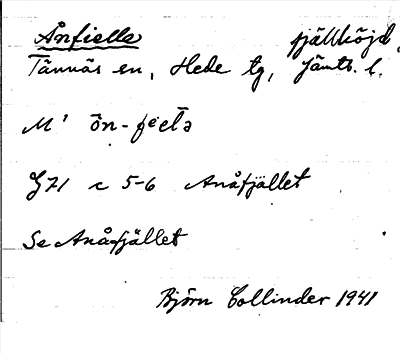 Ånfielle fjällhöjd,
Tännäs sn, Hede tg, Jämtl. l.
M' ön-
G71 c 5-6 Anåfjället
Se Anåfjället
Björn Collinder 1941